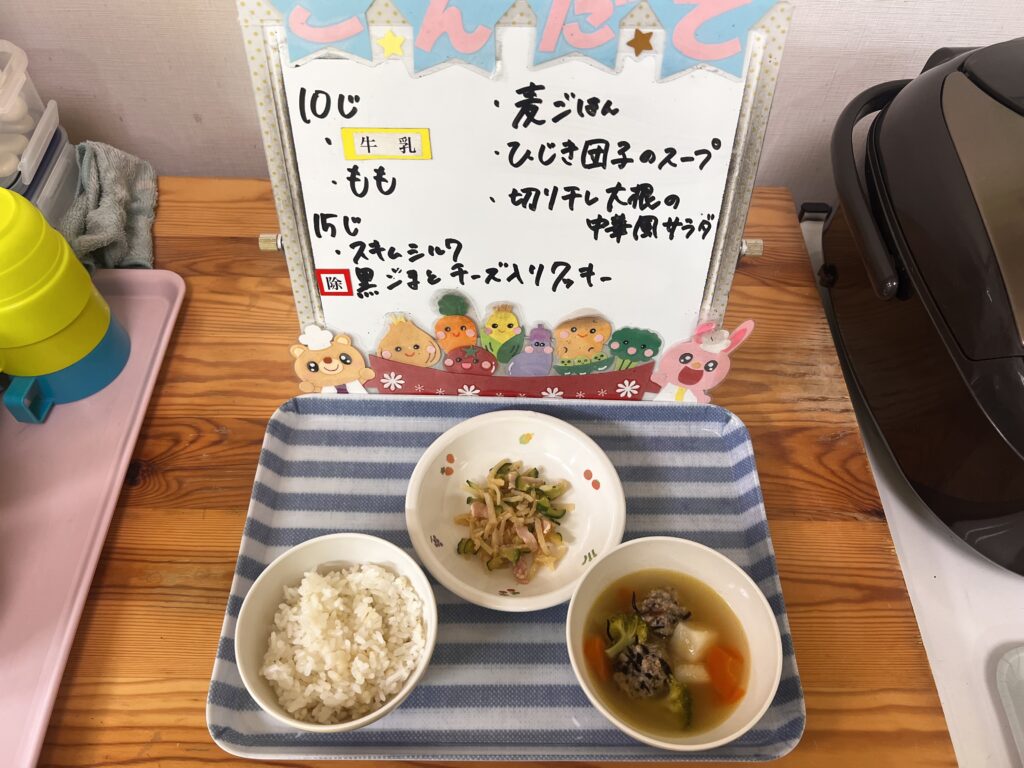 こんだて
10じ
・牛乳
・もも
15じ
・スキムミルク
除 黒ごまとチーズ入りクッキー
・麦ごはん
・ひじき団子のスープ
・切り干し大根の
中華風サラダ